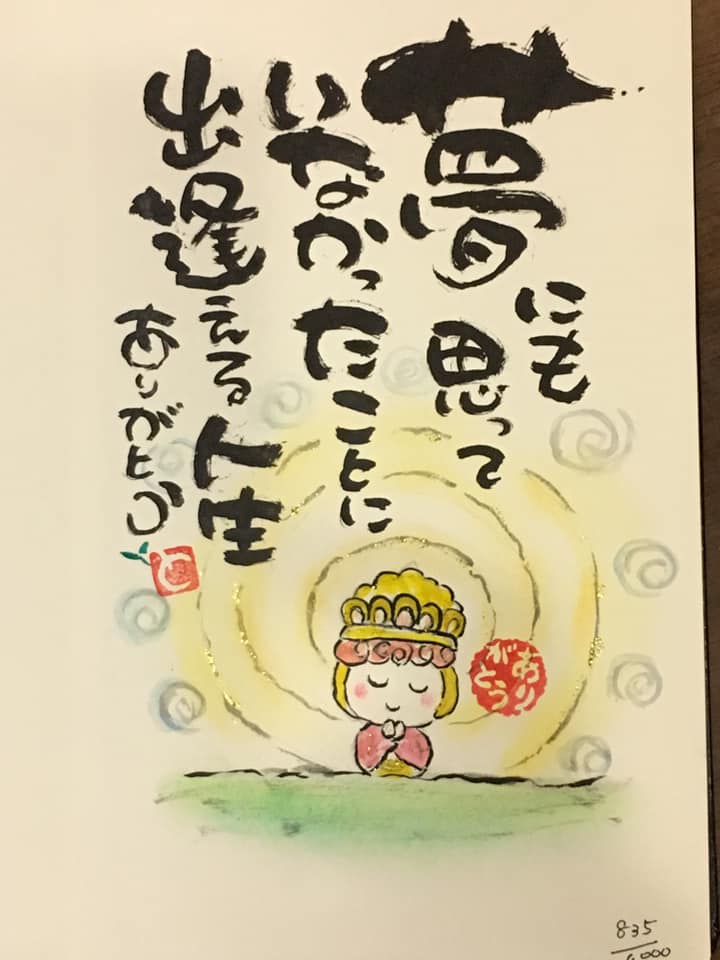 夢にも思って
いなかったことに
出逢える人生
ありがとう
ありがとう
835